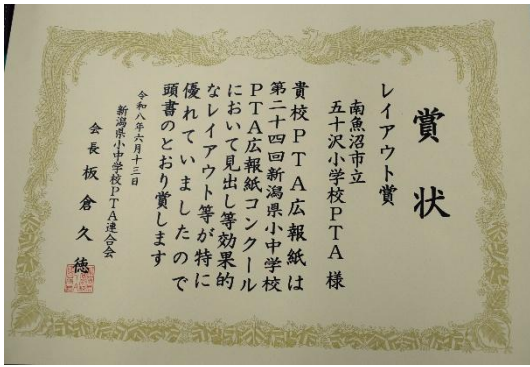 賞状
レイアウト賞
南魚沼市立
五十沢小学校PTA 様
貴校PTA広報紙は
第二十四回新潟県小中学校
PTA広報紙コンクール
において見出し等効果的
なレイアウト等が特に
優れていましたので
頭書のとおり賞します
令和八年六月十三日
新潟県小中学校PTA連合会
会長 板倉久徳